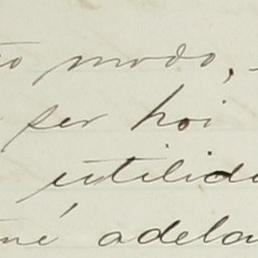 to modo,
ser hoi
utilida
né adela